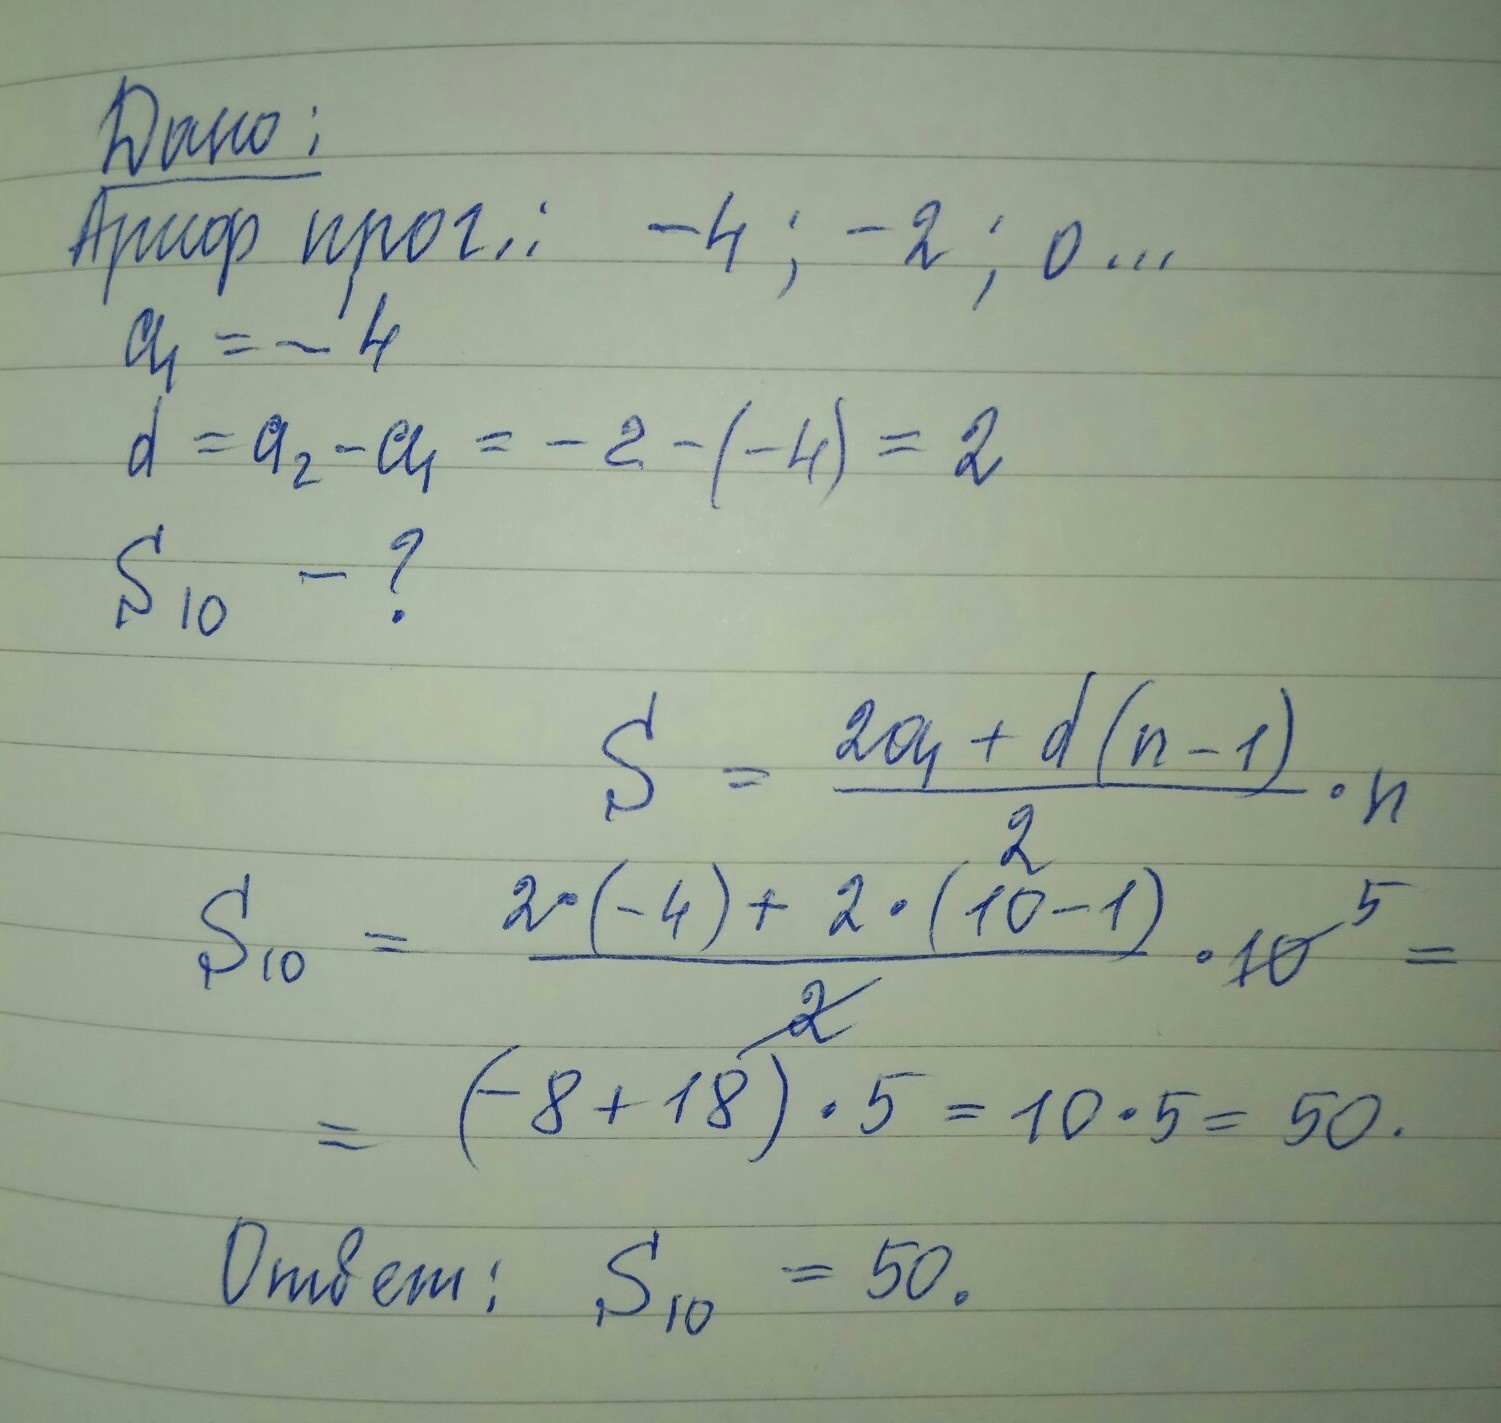 Дано:
Ариф прог.: -4; -2; 0...
a₁ = -4
d = a₂ - a₁ = -2 - (-4) = 2
S₁₀ - ?
S = (2a₁ + d(n-1))/2 · n
S₁₀ = (2·(-4) + 2·(10-1))/2 · 10 5 =
= (-8 + 18) · 5 = 10 · 5 = 50.
Ответ: S₁₀ = 50.